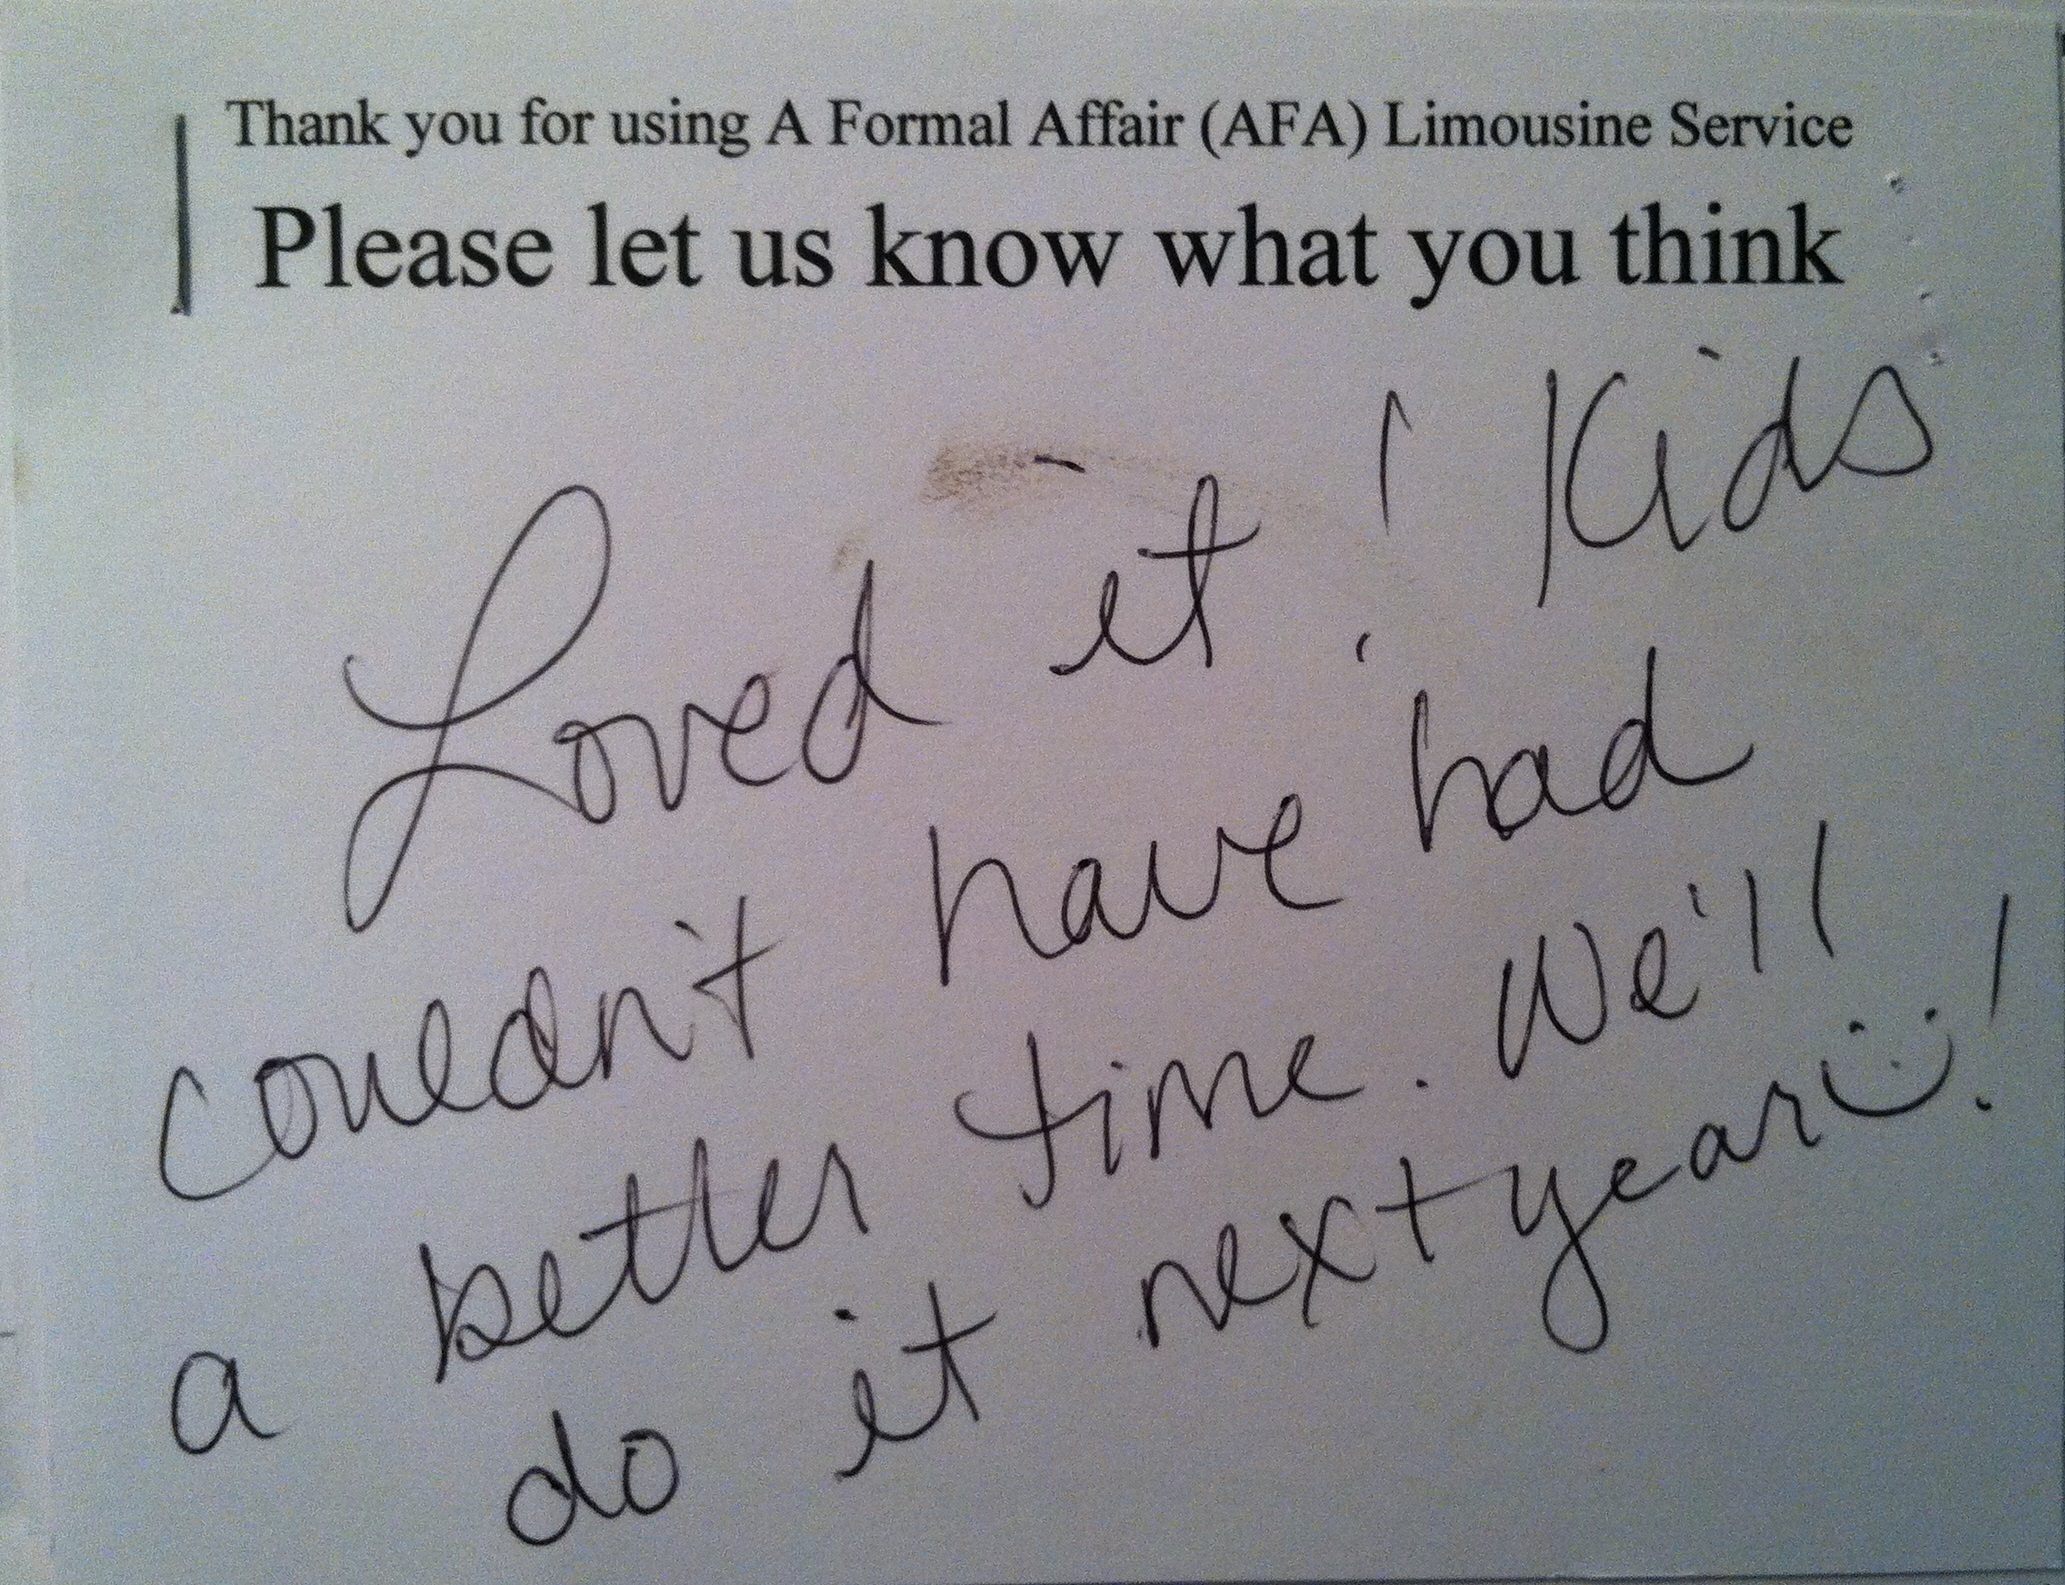 Thank you for using A Formal Affair (AFA) Limousine Service
Please let us know what you think
Loved it! Kids
couldn't have had
a better time. We'll
do it next year!